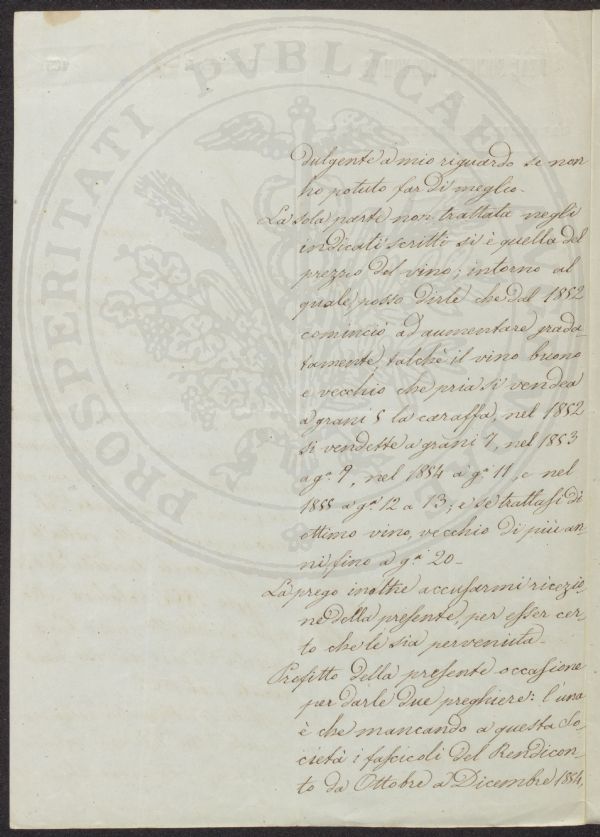 dulgente a mio riguardo se non
ho potuto far di meglio.
La sola parte non trattata negli
indicati scritti si è quella del
prezzo del vino; intorno al
quale posso dirle che dal 1852
cominciò ad aumentare grada-
tamente, talchè il vino buono
e vecchio che pria si vendea
a grani 5 la caraffa, nel 1852
si vendette a grani 7, nel 1853
a g.a 9, nel 1854 a g.a 11, e nel
1855 a g.a 12 a 13; e se trattasi di
ottimo vino, vecchio di più an-
ni, fino a g.a 20-
La prego inoltre accusarmi ricezio-
ne della presente, per esser cer-
to che le sia pervenuta-
Profitto della presente occasione
per darle due preghiere: l'una
è che mancando a questa So-
cietà i fascicoli del Rendicon-
to da Ottobre a Dicembre 1854,
PROSPERITATI PVBLICAE